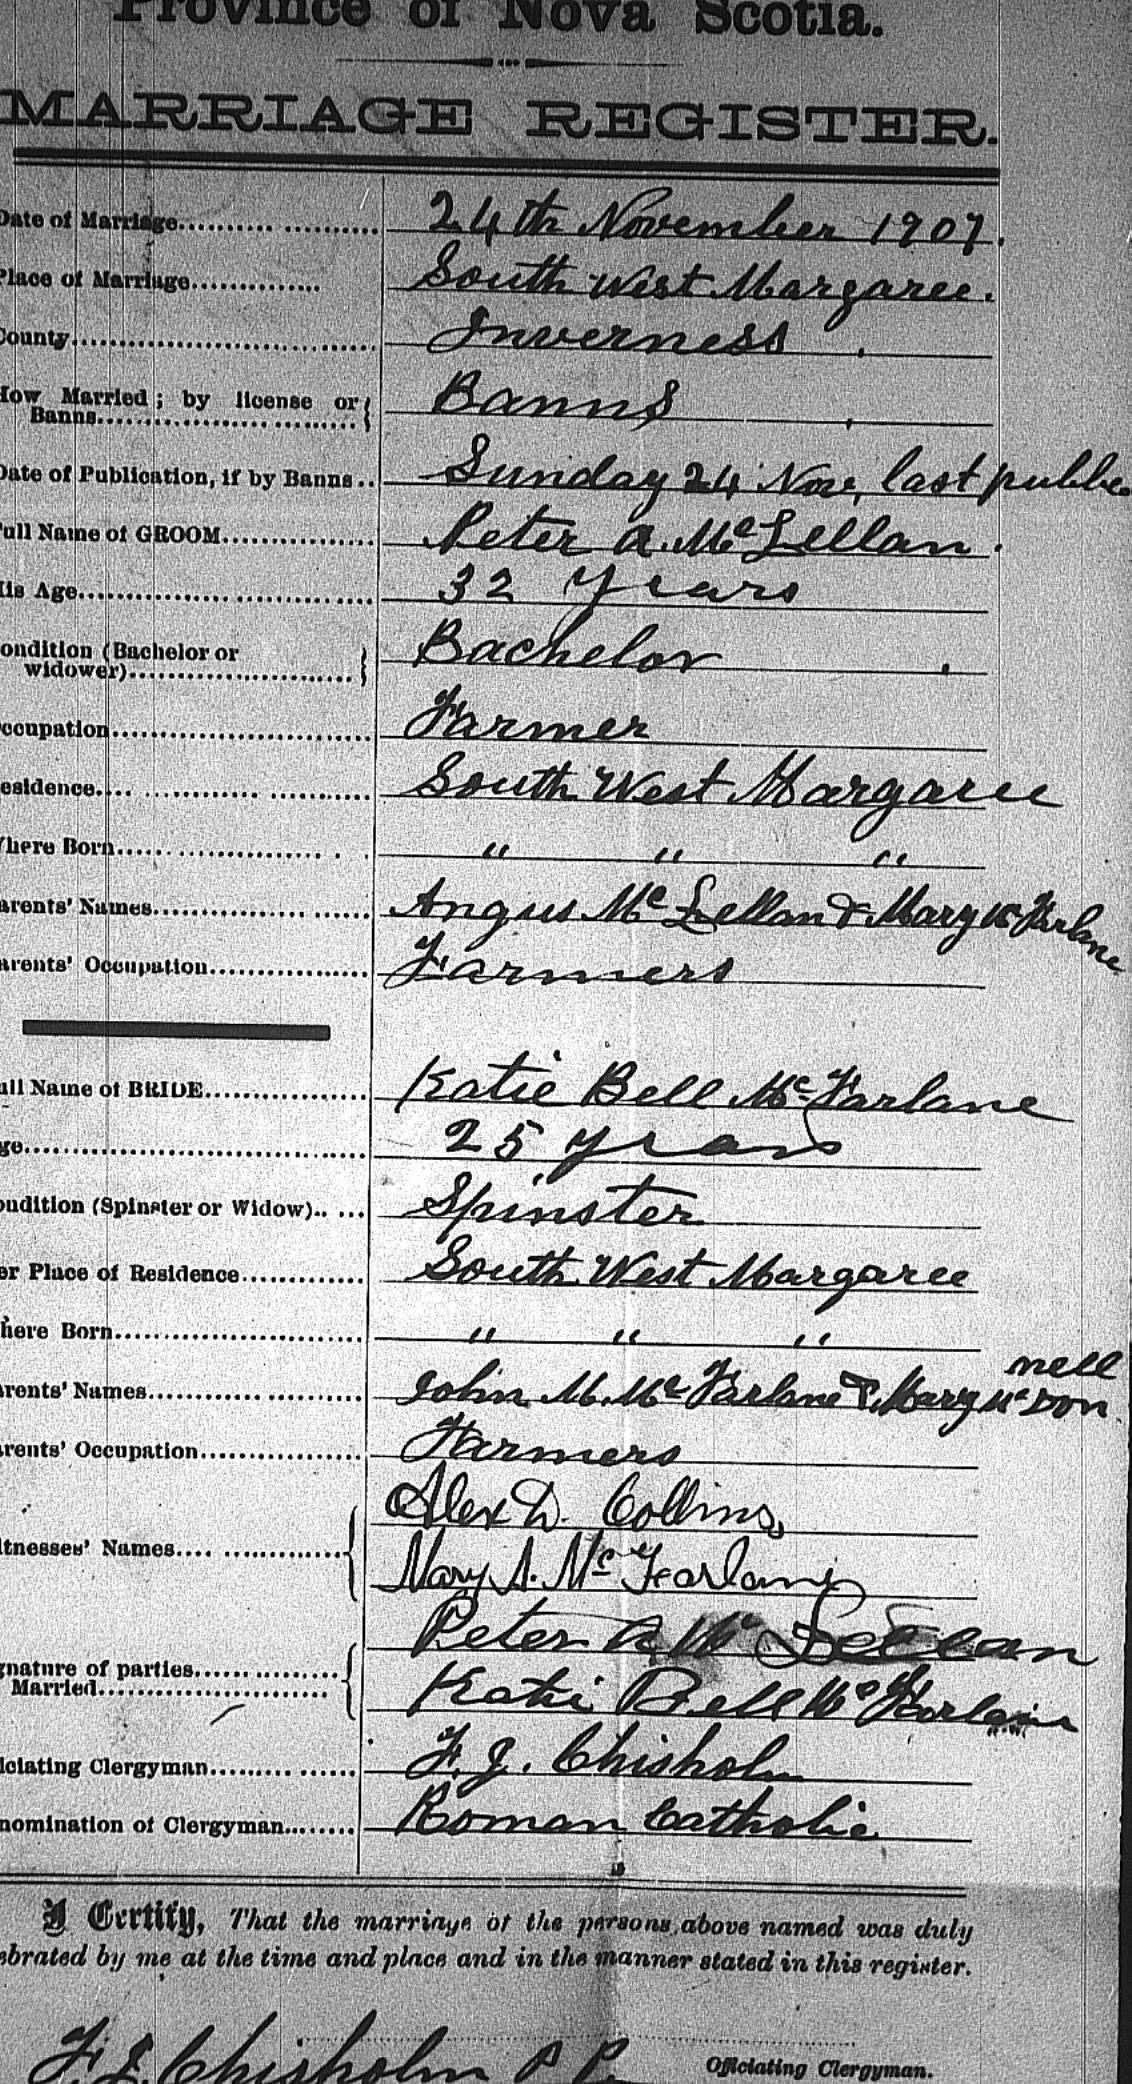 Province of Nova Scotia.
MARRIAGE REGISTER.
Date of Marriage.......... ............ 24th November 1907.
Place of Marriage.............. South West Margaree.
County................................. Inverness
How Married; by license or Banns........................... Banns
Date of Publication, if by Banns.. Sunday 24 Nov, last public
Full Name of GROOM................ Peter A. McLellan.
His Age................................. 32 Years
Condition (Bachelor or widower)......................... Bachelor
Occupation............................ Farmer
Residence.... ........... ........... South West Margaree
Where Born........................ " " "
Parents' Names............... ...... Angus McLellan & Mary McFarlane
Parents' Occupation................ Farmers
Full Name of BRIDE................. Katie Bell McFarlane
Age..................................... 25 years
Condition (Spinster or Widow).. ... Spinster
Her Place of Residence............. South West Margaree
Where Born........................... " " "
nell
Parents' Names............... ....... John M. McFarlane & Mary McDon
Parents' Occupation................. Farmers
Alex D. Collins,
Witnesses' Names.... .............
Mary A. McFarlane
Peter A McLellan
Signature of parties...... ...........
Married............................
Katie Bell McFarlane
Officiating Clergyman......... ...... F. J. Chisholm
Denomination of Clergyman........ Roman Catholic
I Certify, That the marriage of the persons above named was duly
celebrated by me at the time and place and in the manner stated in this register.
F. J. Chisholm P P.
Officiating Clergyman.